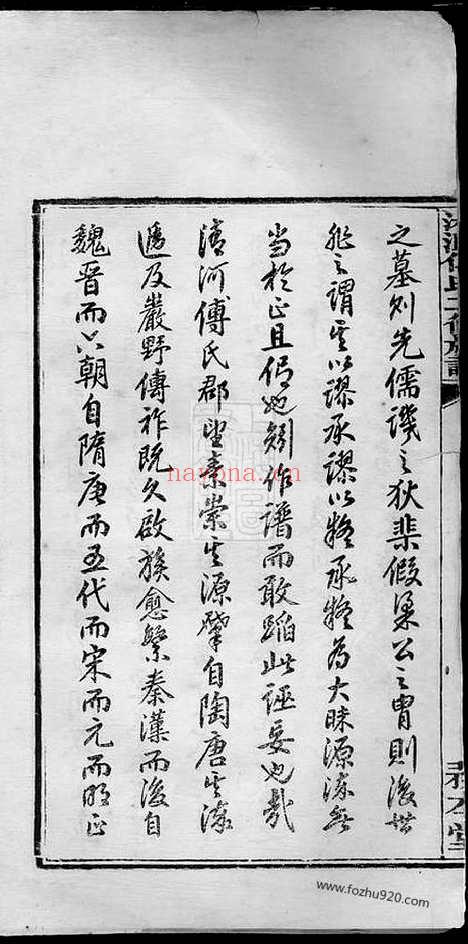 之墓则先儒譏之狄棐假梁公之胄則後世
非之謂其以謬承謬以疑承疑為大昧源流無
當於正且偽也矧作譜而敢蹈此誣妄也哉
清河傅氏郡望素崇其源肇自陶唐其流
遞及巖野傳祚既久啟族愈繁秦漢而後自
魏晋而六朝自隋唐而五代而宋而元而明正
傅氏三修族譜
敦本堂
nayona.cn
www.fozhu920.com